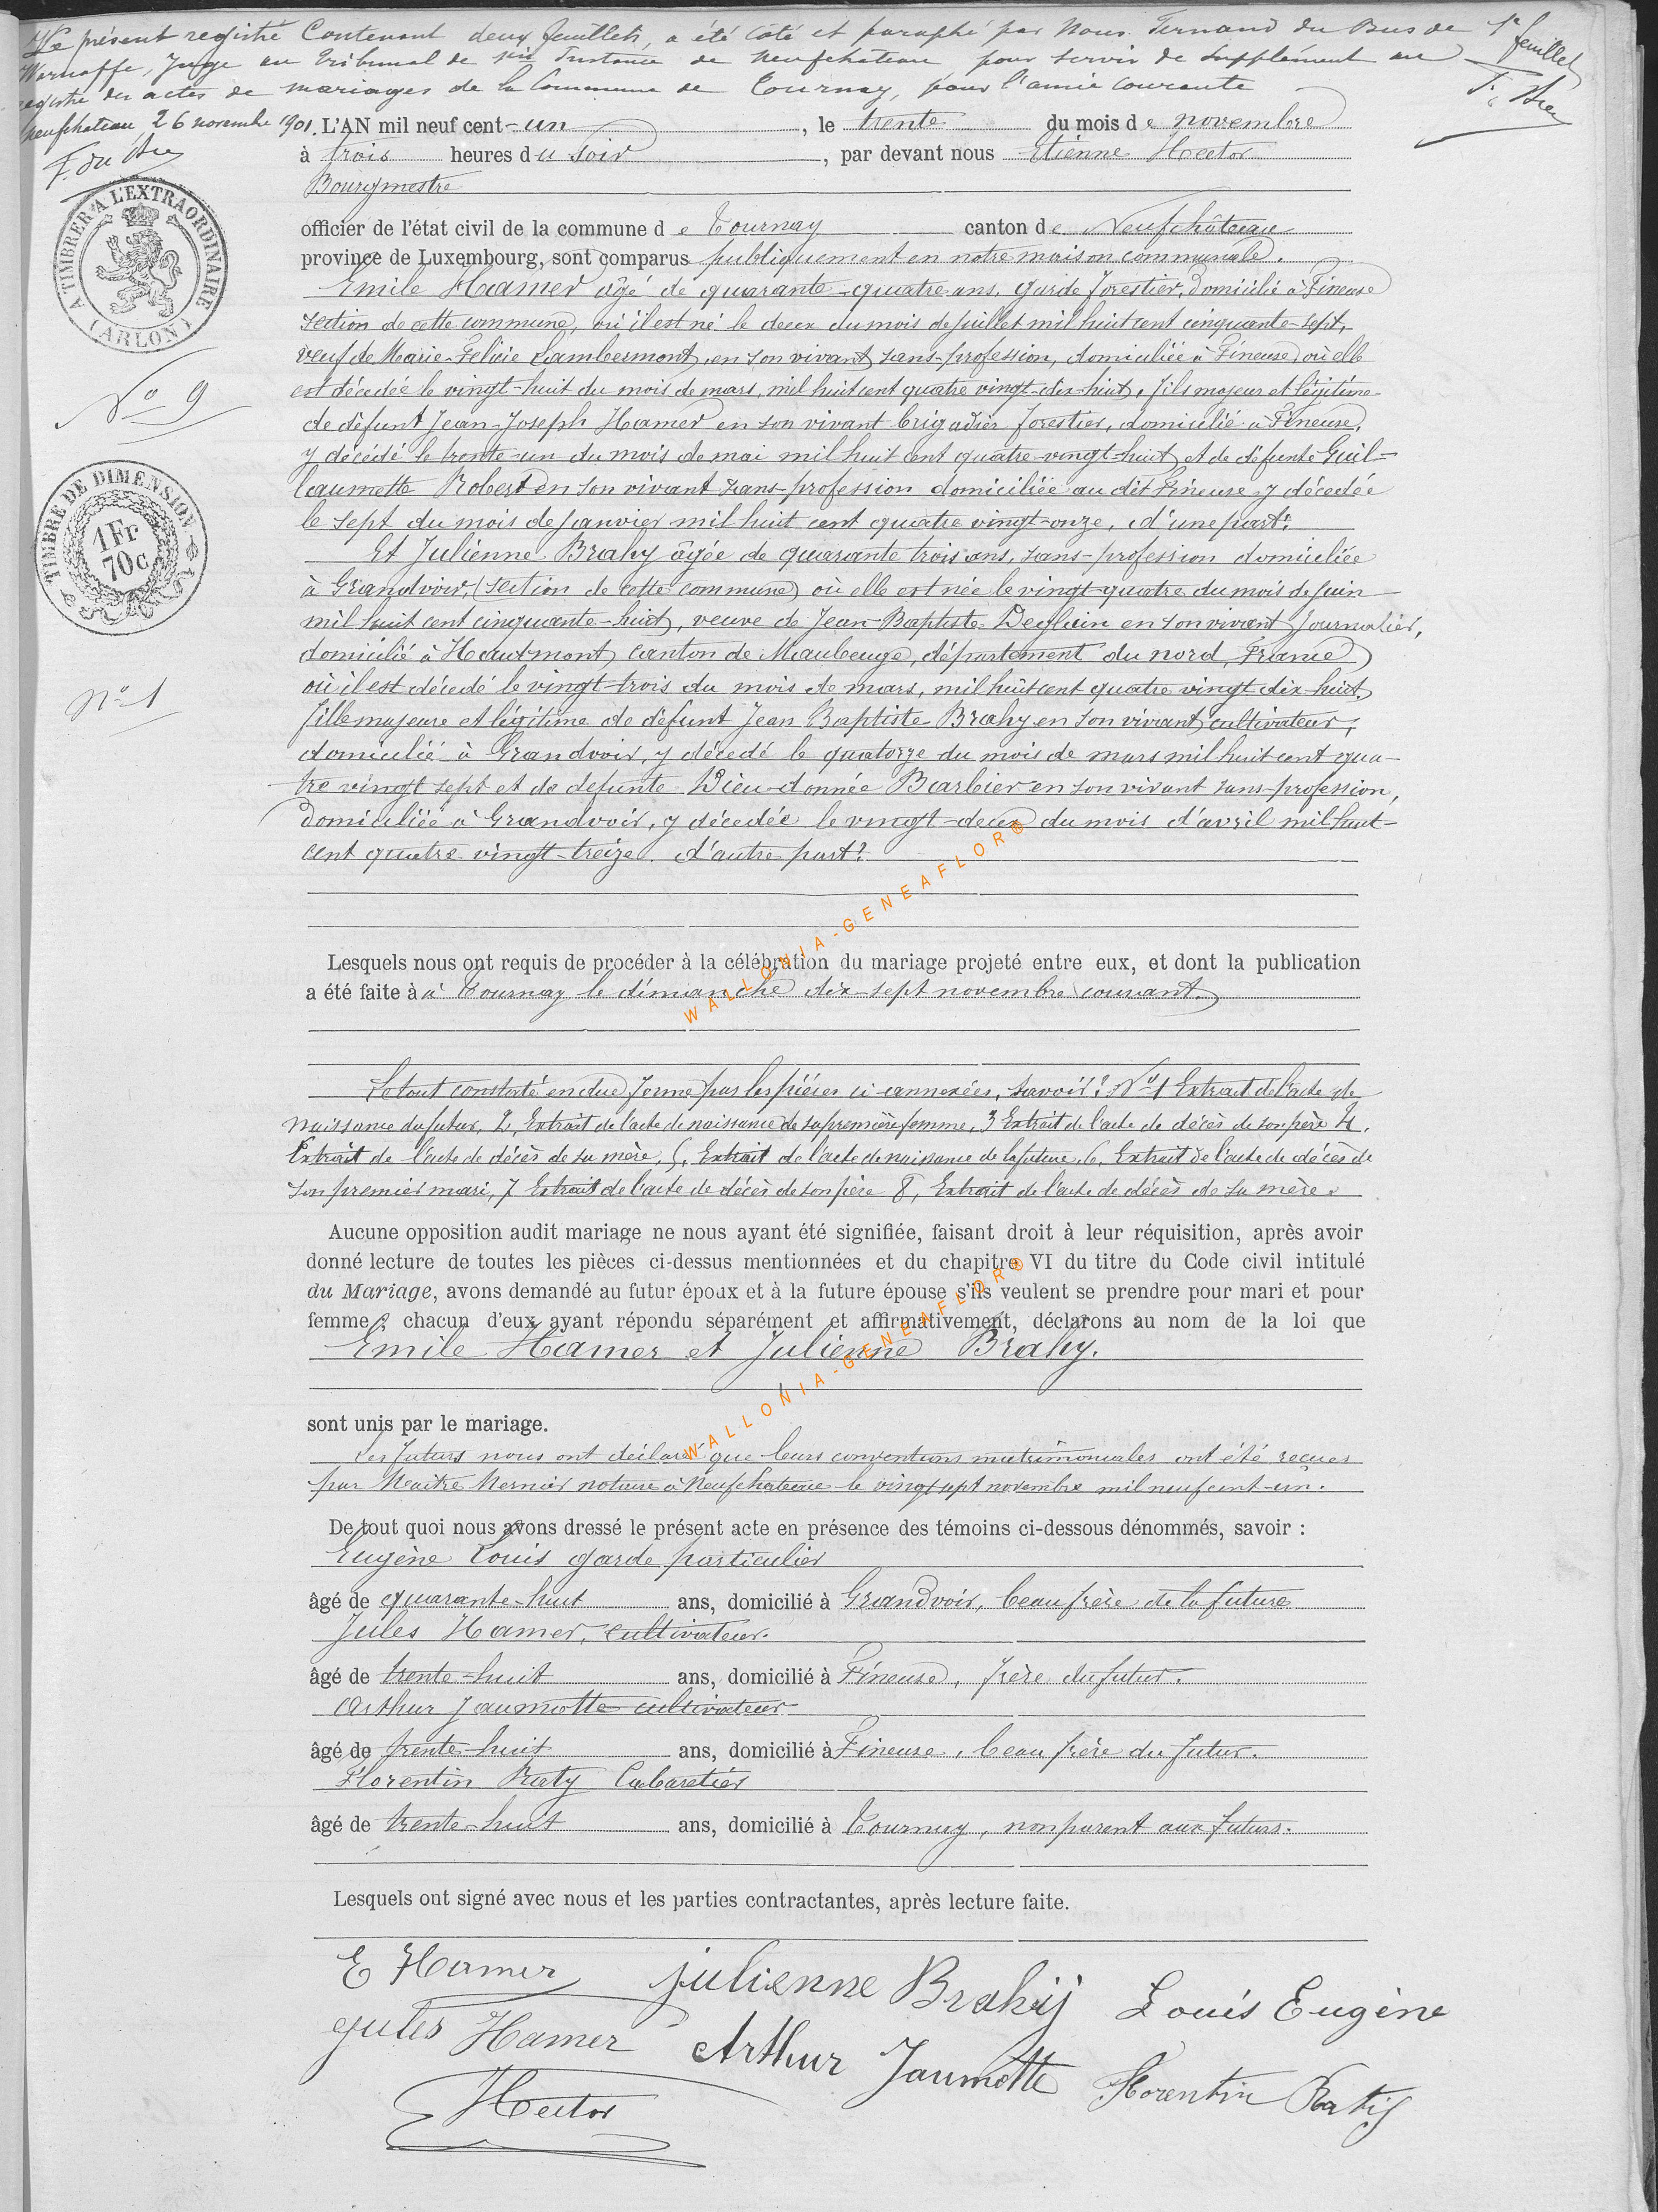 Le présent registre Contenant deux feuillets, a été coté et paraphé par Nous Fernand du Bus de
Warnaffe, Juge au Tribunal de 1re Instance de Neufchâteau pour servir de Supplément au
registre des actes de mariages de la Commune de Tournay, pour l'année courante
Neufchateau 26 novembre 1901.
F. du Bus
1r feuillet
F. du Bus
A TIMBRER A L'EXTRAORDINAIRE
(ARLON)
No 9
TIMBRE DE DIMENSION
1 Fr
70c
No 1
L'AN mil neuf cent - un, le trente du mois de novembre
à trois heures du soir, par devant nous Etienne Hector
Bourgmestre
officier de l'état civil de la commune de Tournay canton de Neufchâteau
province de Luxembourg, sont comparus publiquement en notre maison communale.
Emile Hamer âgé de quarante-quatre ans, garde forestier, domicilié à Fineuse
section de cette commune, où il est né le deux du mois de juillet mil huit cent cinquante-sept,
veuf de Marie-Felicie Lambermont, en son vivant sans-profession, domiciliée à Fineuse, où elle
est décedée le vingt-huit du mois de mars, mil huit cent quatre vingt-dix-huit, fils majeur et légitime
de défunt Jean-Joseph Hamer en son vivant brigadier forestier, domicilié à Fineuse,
y décédé le trente-un du mois de mai mil huit cent quatre-vingt-huit, et de défunte Guil-
laumette Robert en son vivant sans-profession domiciliée au dit Fineuse y décedée
le sept du mois de janvier mil huit cent quatre vingt-onze, d'une part.
Et Julienne Brahy âgée de quarante trois ans, sans-profession domiciliée
à Grandvoir, (section de cette commune) où elle est née le vingt-quatre du mois de juin
mil huit cent cinquante-huit, veuve de Jean-Baptiste Deglain en son vivant journalier,
domicilié à Hautmont, canton de Maubeuge, département du nord, France
où il est décedé le vingt-trois du mois de mars, mil huit cent quatre vingt dix-huit,
fille majeure et légitime de défunt Jean Baptiste Brahy en son vivant cultivateur,
domicilié à Grandvoir, y décedé le quatorze du mois de mars mil huit cent qua-
tre vingt sept et de defunte Dieu-donnée Barbier en son vivant sans-profession,
domiciliée à Grandvoir, y décedée le vingt-deux du mois d'avril mil huit-
cent quatre vingt-treize. d'autre part.
Lesquels nous ont requis de procéder à la célébration du mariage projeté entre eux, et dont la publication
a été faite à à Tournay le dimanche dix-sept novembre courant.
Le tout constaté en due forme par les pièces ci-annexées, savoir: No 1 Extrait de l'acte de
naissance du futur, 2, Extrait de l'acte de naissance de sa première femme, 3 Extrait de l'acte de décès de son père 4,
Extrait de l'acte de décès de sa mère, 5, Extrait de l'acte de naissance de la future, 6, Extrait de l'acte de décès de
son premier mari, 7 Extrait de l'acte de décès de son père 8, Extrait de l'acte de décès de sa mère.
Aucune opposition audit mariage ne nous ayant été signifiée, faisant droit à leur réquisition, après avoir
donné lecture de toutes les pièces ci-dessus mentionnées et du chapitre VI du titre du Code civil intitulé
du Mariage, avons demandé au futur époux et à la future épouse s'ils veulent se prendre pour mari et pour
femme; chacun d'eux ayant répondu séparément et affirmativement, déclarons au nom de la loi que
Emile Hamer et Julienne Brahy.
sont unis par le mariage.
Les futurs nous ont déclaré que leurs conventions matrimoniales ont été reçues
par Maître Mernier notaire à Neufchateau le vingt sept novembre mil neuf cent-un.
De tout quoi nous avons dressé le présent acte en présence des témoins ci-dessous dénommés, savoir :
Eugène Louis garde particulier
âgé de quarante-huit ans, domicilié à Grandvoir, beau frère de la future
Jules Hamer, cultivateur.
âgé de trente-huit ans, domicilié à Fineuse, frère du futur.
Arthur Jaumotte cultivateur
âgé de trente-huit ans, domicilié à Fineuse, beau frère du futur.
Florentin Raty Cabaretier
âgé de trente-huit ans, domicilié à Tournay, non parent aux futurs.
Lesquels ont signé avec nous et les parties contractantes, après lecture faite.
E Hamer Julienne Brahij Louis Eugène
Jules Hamer Arthur Jaumotte Florentin Ratij
Hector
WALLONIA-GENEAFLOR®
WALLONIA-GENEAFLOR®